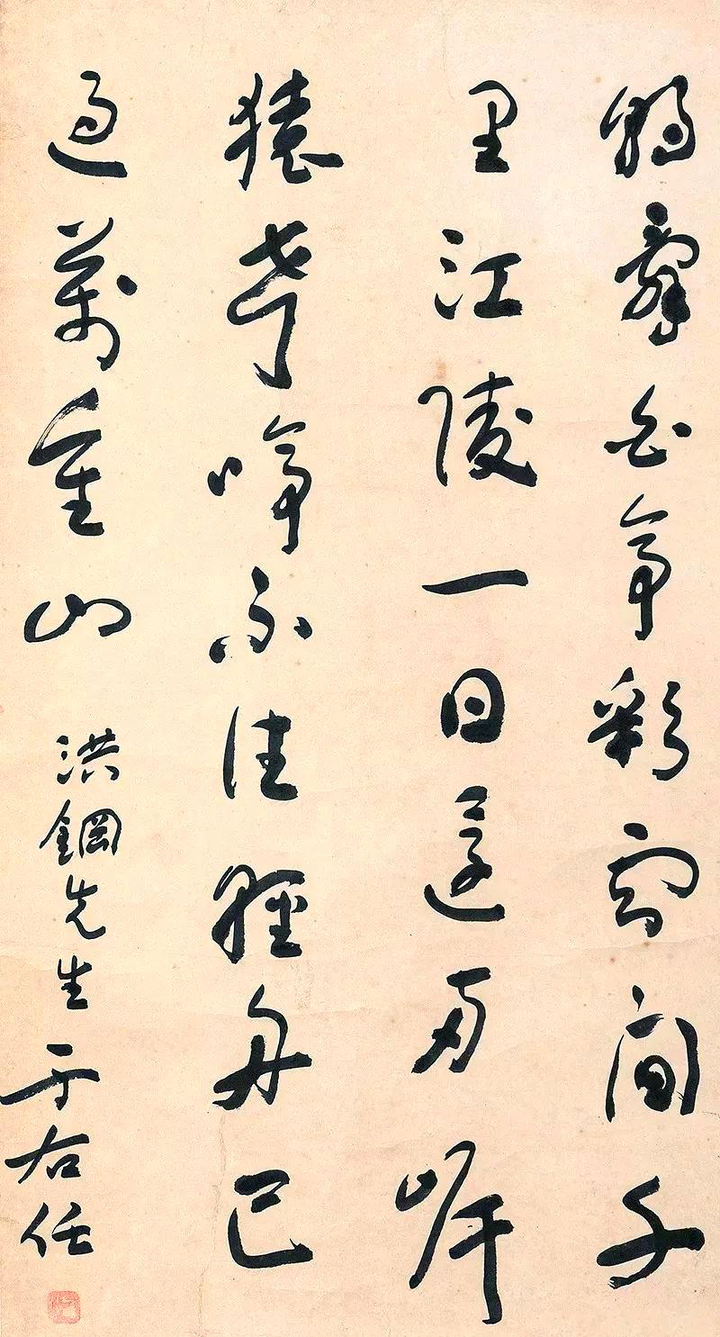 朝辭白帝彩雲間千
里江陵一日還兩岸
猿聲啼不住輕舟已
過萬重山
洪鋼先生 于右任